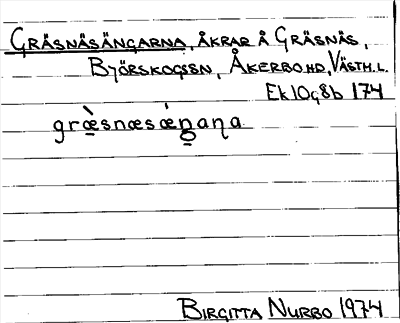 GRÄSNÄSÄNGARNA, ÅKRAR Å GRÄSNÄS,
BJÖRSKOGSSN, ÅKERBO HD, VÄSTM.L.
EK10G8b 174
græ̀snæsǽŋaɳa
BIRGITTA NURBO 1974